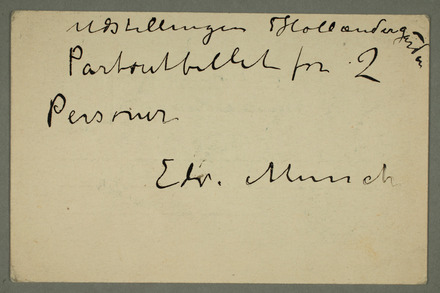 Udstillingen Hollændergården
Partoutbillet for 2
Personer
Edv. Munch